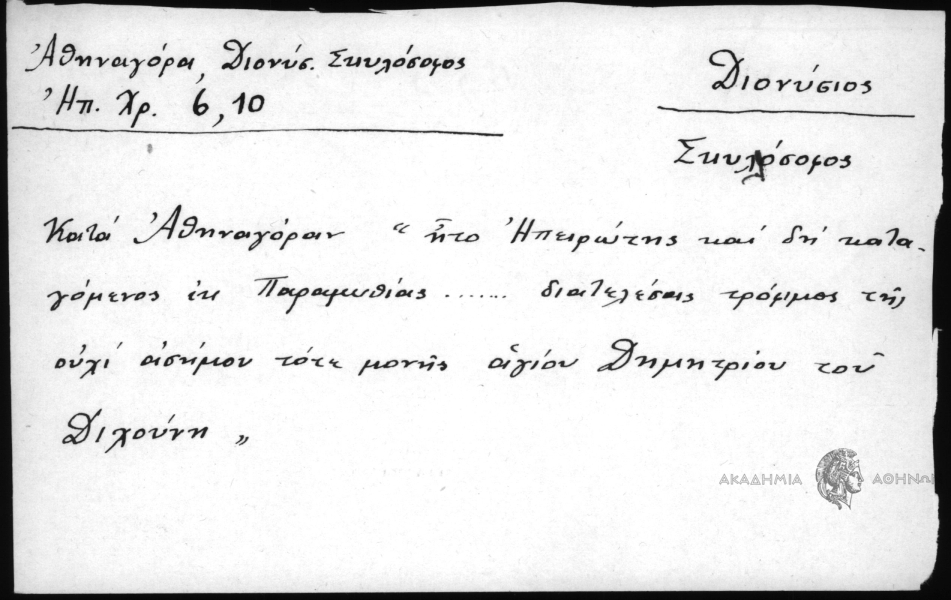 Ἀθηναγόρα, Διονύσ. Σκυλόσοφος
Ἠπ. Χρ. 6, 10
Διονύσιος
Σκυλόσοφος
Κατά Ἀθηναγόραν “ ἦτο Ἠπειρώτης καί δή κατα-
γόμενος ἐκ Παραμυθίας ...... διατελέσας τρόφιμος τῆς
οὐχί ἀσήμου τότε μονῆς ἁγίου Δημητρίου τοῦ
Διχούνη „
ΑΚΑΔΗΜΙΑ ΑΘΗΝΩΝ